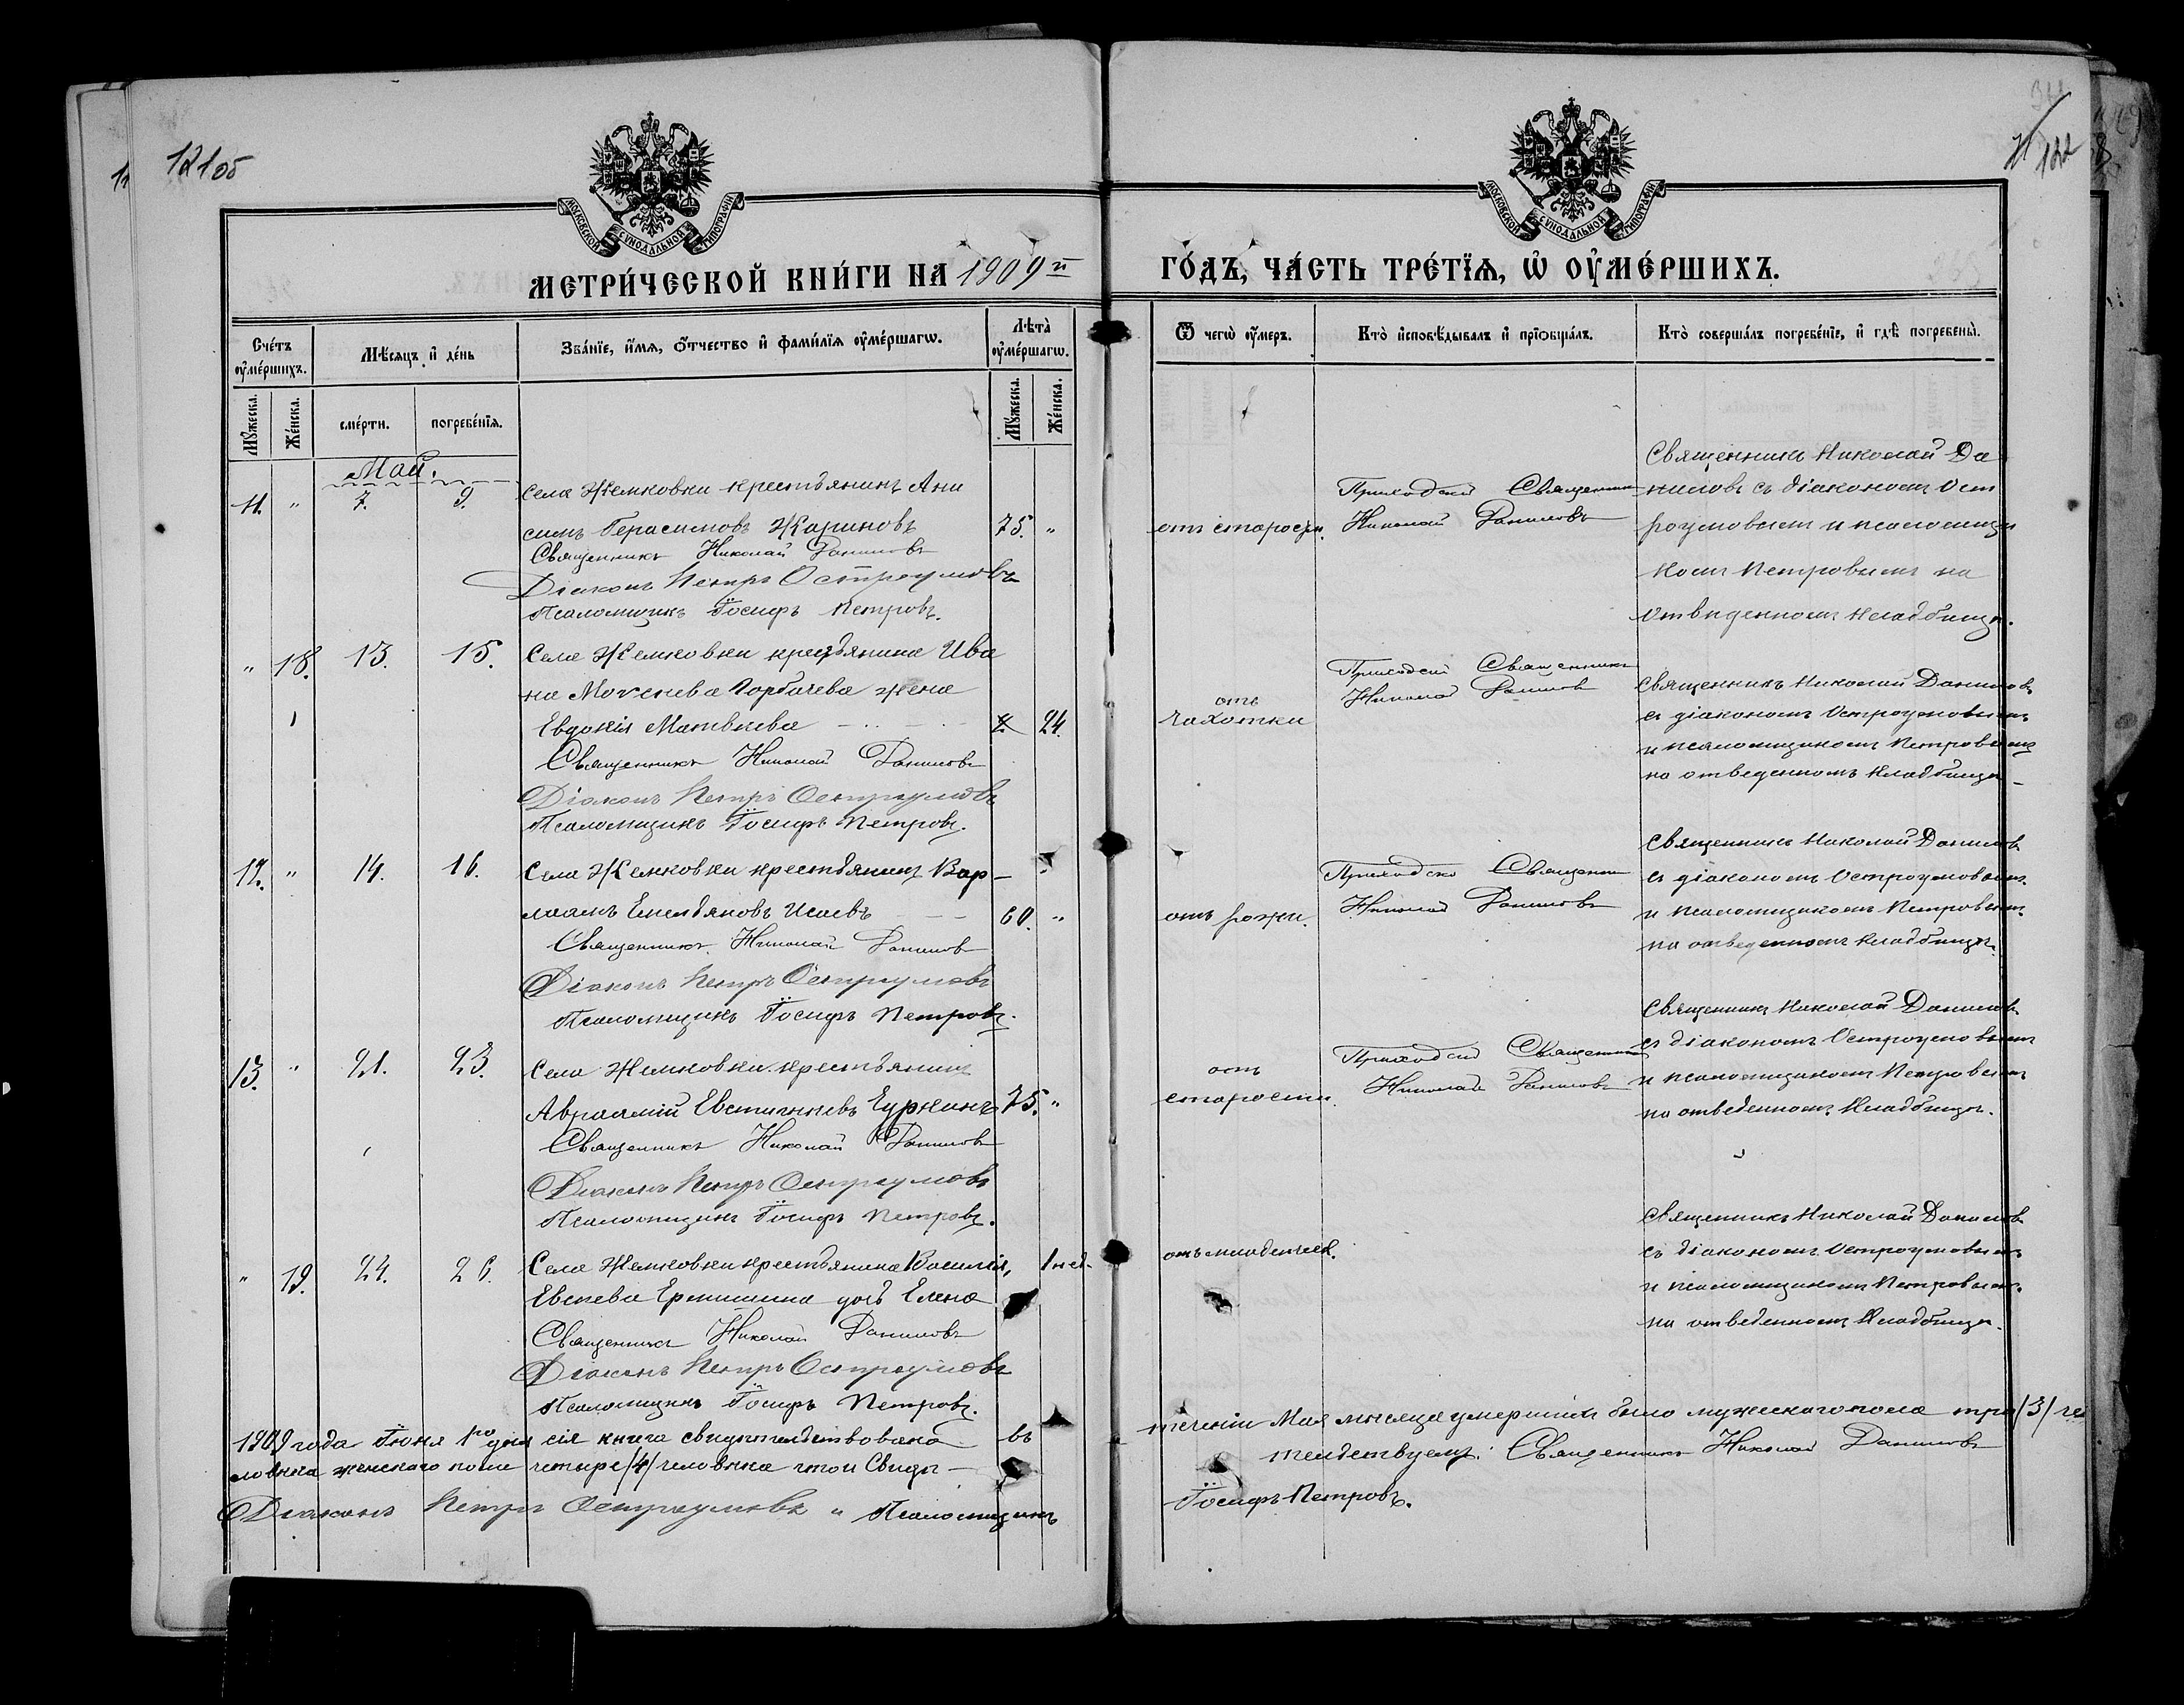 121об
122
МОСКОВСКОЙ СѴНОДАЛЬНОЙ ТИПОГРАФІИ
МОСКОВСКОЙ СѴНОДАЛЬНОЙ ТИПОГРАФІИ
МЕТРИ́ЧЕСКОЙ КНИ́ГИ НА 1909й ГО́ДЪ, ЧА́СТЬ ТРЕ́ТЇѦ, Ѽ ОУ҆МЕ́РШИХЪ.
Сче́тъ оу҆ме́ршихъ.
Мѣ́сѧцъ и҆ де́нь
Зва́нїе, и҆́мѧ, ѻ҆́тчество и҆ фами́лїѧ оу҆ме́ршагѡ.
Лѣта̀ оу҆ме́ршагѡ.
Ѿ чегѡ̀ оу҆́меръ.
Кто̀ и҆сповѣ́дывалъ и҆ прїѡбща́лъ.
Кто̀ соверша́лъ погребе́нїе, и҆ гдѣ̀ погребены̀.
Мꙋ́жеска.
Же́нска.
сме́рти.
погребе́нїѧ.
Мꙋ́жеска.
Же́нска.
Май.
11. " 7. 9. Села Жемковки крестьянинъ Ани
симъ Герасимовъ Жариновъ 75. "
Священникъ Николай Даниловъ
Діаконъ Петръ Остроумовъ
Псаломщикъ Іосифъ Петровъ.
отъ старости.
Приходскій Священникъ
Николай Даниловъ
Священникъ Николай Да
ниловъ съ діакономъ Ост
роумовымъ и псаломщи
комъ Петровымъ на
отведенномъ кладбищѣ.
" 18. 13. 15. Села Жемковки крестьянина Ива
на Моѵсеева Горбачева жена
Евдокія Матвѣева 24.
Священникъ Николай Даниловъ
Діаконъ Петръ Остроумовъ
Псаломщикъ Іосифъ Петровъ.
отъ
чахотки
Приходскій Священникъ
Николай Даниловъ
Священникъ Николай Даниловъ
съ діакономъ Остроумовымъ
и псаломщикомъ Петровымъ
на отведенномъ кладбищѣ
12. " 14. 16. Села Жемковки крестьянинъ Вар-
лаамъ Емельяновъ Исаевъ 60. "
Священникъ Николай Даниловъ
Діаконъ Петръ Остроумовъ
Псаломщикъ Іосифъ Петровъ.
отъ рожи.
Приходскій Священникъ
Николай Даниловъ
Священникъ Николай Даниловъ
съ діакономъ Остроумовымъ
и псаломщикомъ Петровымъ
на отведенномъ кладбищѣ.
13. " 21. 23. Села Жемковки крестьянинъ
Авраамій Евстигнѣевъ Гуркинъ 75. "
Священникъ Николай Даниловъ
Діаконъ Петръ Остроумовъ
Псаломщикъ Іосифъ Петровъ.
отъ
старости.
Приходскій Священникъ
Николай Даниловъ
Священникъ Николай Даниловъ
съ діакономъ Остроумовымъ
и псаломщикомъ Петровымъ
на отведенномъ кладбищѣ.
" 19. 24. 26. Села Жемковки крестьянина Василія, 1 нед.
Евсѣева дочь Елена
Священникъ Николай Даниловъ
Діаконъ Петръ Остроумовъ
Псаломщикъ Іосифъ Петровъ.
отъ младенческ.
Священникъ Николай Даниловъ
съ діакономъ Остроумовымъ
и псаломщикомъ Петровымъ.
на отведенномъ кладбищѣ.
1909 года Іюня 1го дня сія книга свидѣтельствована въ теченіи Мая мѣсяца умершихъ было мужескаго пола три /3/ че
ловѣка женскаго пола четыре /4/ человѣка въ томъ свидѣ- тельствуемъ: Священникъ Николай Даниловъ
Діаконъ Петръ Остроумовъ " Псаломщикъ Іосифъ Петровъ.